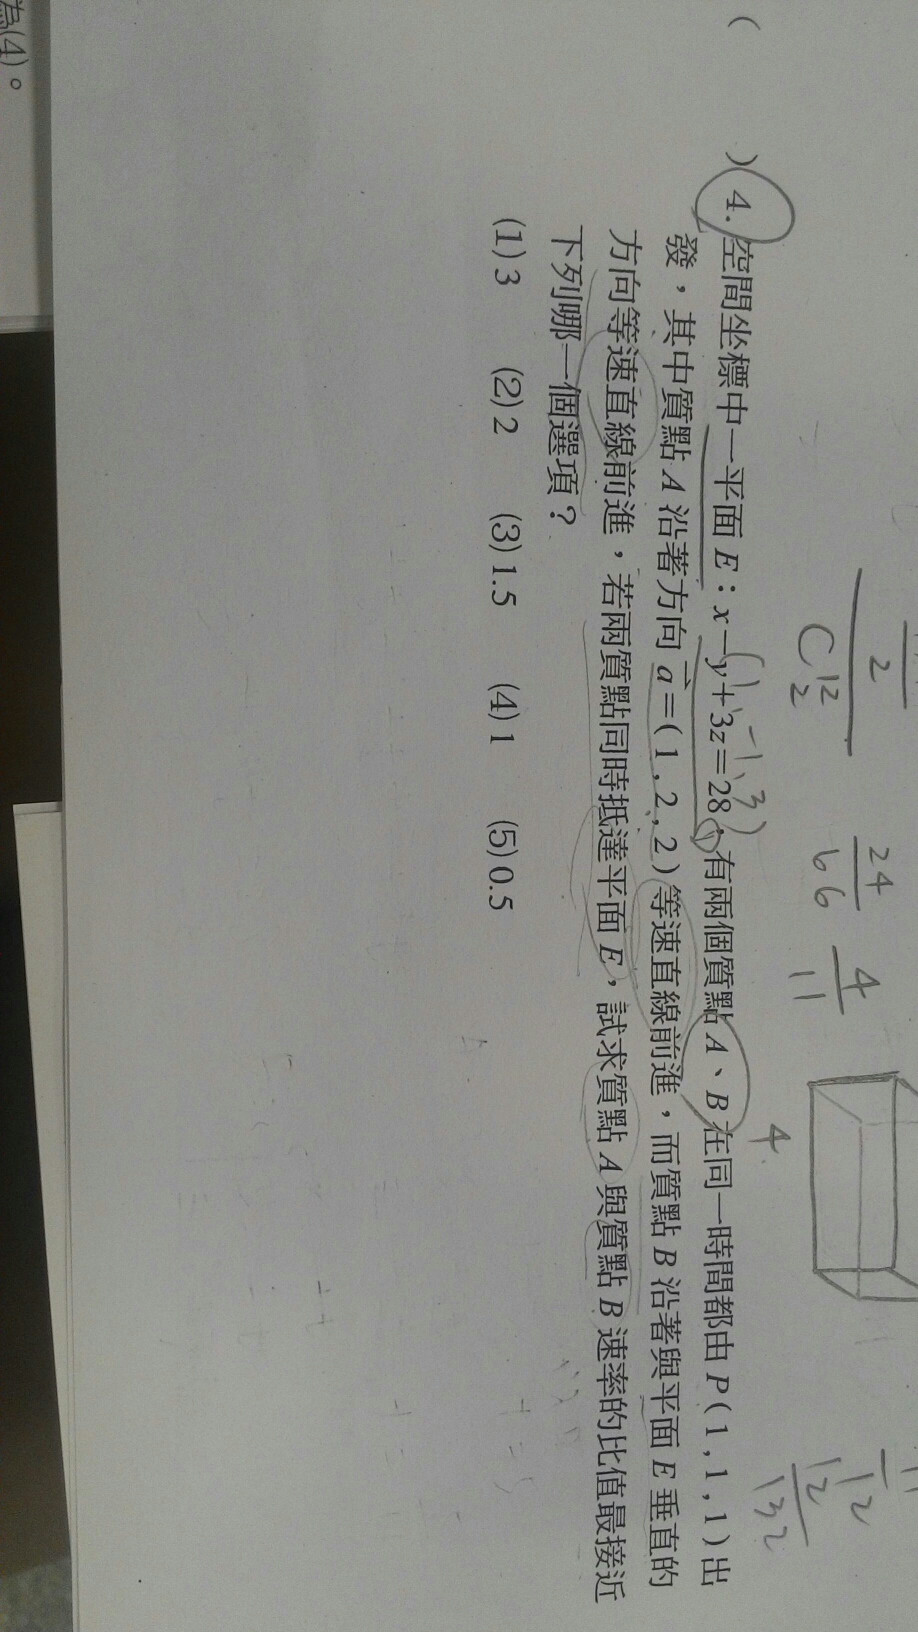 為(4)。
( ) 4. 空間坐標中一平面 E：x－y＋3z＝28，有兩個質點 A、B 在同一時間都由 P(1,1,1) 出
發，其中質點 A 沿著方向 a⃗＝(1,2,2) 等速直線前進，而質點 B 沿著與平面 E 垂直的
方向等速直線前進，若兩質點同時抵達平面 E，試求質點 A 與質點 B 速率的比值最接近
下列哪一個選項？
(1) 3 (2) 2 (3) 1.5 (4) 1 (5) 0.5
(1, -1, 3)
2
C 12 2
24
66
4
11
4
12
12
132